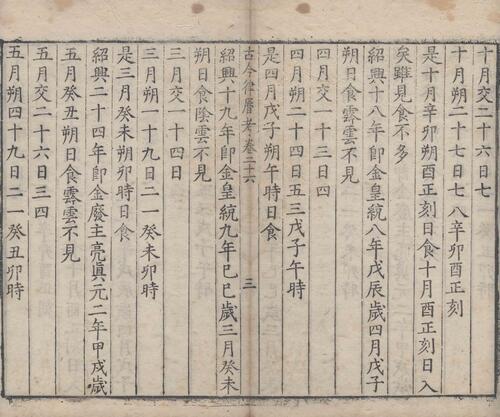 十月交二十六日七
十月朔二十七日七八辛卯酉正刻
是十月辛卯朔酉正刻日食十月酉正刻日入
矣雖見食不多
紹興十八年卽金皇統八年戊辰歲四月戊子
朔日食陰雲不見
四月交一十三日四
四月朔二十四日五三戊子午時
是四月戊子朔午時日食
古今律曆考卷二十六
三
紹興十九年卽金皇統九年巳巳歲三月癸未
朔日食陰雲不見
三月交一十四日
三月朔一十九日二一癸未卯時
是三月癸未朔卯時日食
紹興二十四年卽金廢主亮眞元二年甲戌歲
五月癸丑朔日食雲不見
五月交二十六日三四
五月朔四十九日二一癸丑卯時